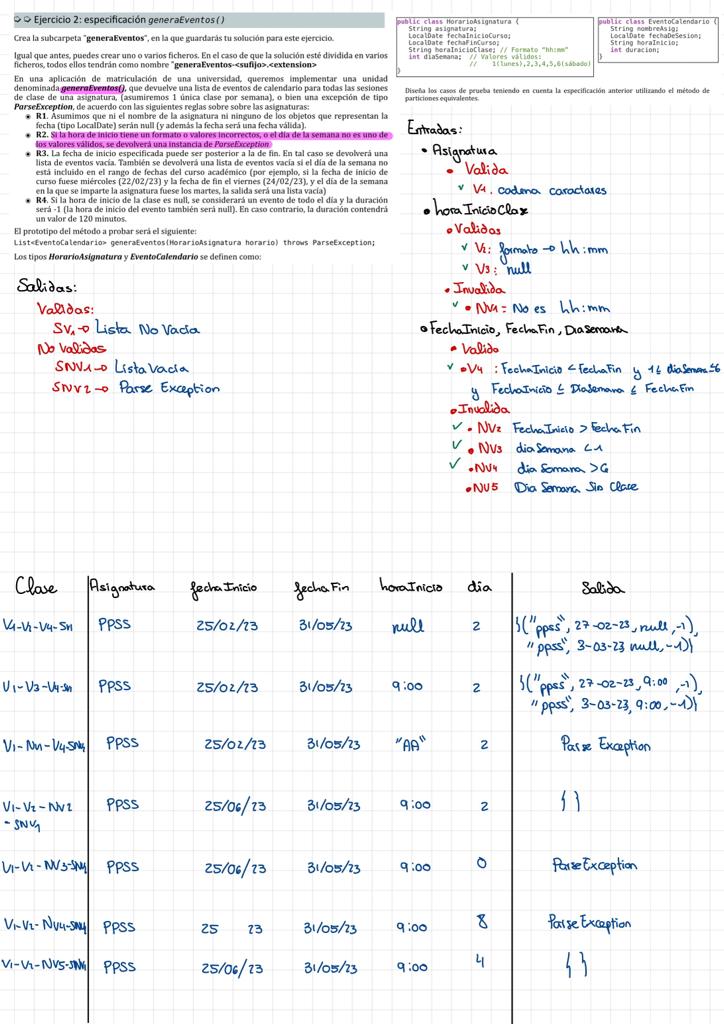 Ejercicio 2: especificación generaEventos()
Crea la subcarpeta "generaEventos", en la que guardarás tu solución para este ejercicio.
Igual que antes, puedes crear uno o varios ficheros. En el caso de que la solución esté dividida en varios
ficheros, todos ellos tendrán como nombre "generaEventos-<sufijo>.<extension>
En una aplicación de matriculación de una universidad, queremos implementar una unidad
denominada generaEventos(), que devuelve una lista de eventos de calendario para todas las sesiones
de clase de una asignatura, (asumiremos 1 única clase por semana), o bien una excepción de tipo
ParseException, de acuerdo con las siguientes reglas sobre sobre las asignaturas:
R1. Asumimos que ni el nombre de la asignatura ni ninguno de los objetos que representan la
fecha (tipo LocalDate) serán null (y además la fecha será una fecha válida).
R2. Si la hora de inicio tiene un formato o valores incorrectos, o el día de la semana no es uno de
los valores válidos, se devolverá una instancia de ParseException
R3. La fecha de inicio especificada puede ser posterior a la de fin. En tal caso se devolverá una
lista de eventos vacía. También se devolverá una lista de eventos vacía si el día de la semana no
está incluido en el rango de fechas del curso académico (por ejemplo, si la fecha de inicio de
curso fuese miércoles (22/02/23) y la fecha de fin el viernes (24/02/23), y el día de la semana
en la que se imparte la asignatura fuese los martes, la salida será una lista vacía)
R4. Si la hora de inicio de la clase es null, se considerará un evento de todo el día y la duración
será -1 (la hora de inicio del evento también será null). En caso contrario, la duración contendrá
un valor de 120 minutos.
El prototipo del método a probar será el siguiente:
List<EventoCalendario> generaEventos(HorarioAsignatura horario) throws ParseException;
Los tipos HorarioAsignatura y EventoCalendario se definen como:
public class HorarioAsignatura {
String asignatura;
LocalDate fechaInicioCurso;
LocalDate fechaFinCurso;
String horaInicioClase; // Formato "hh:mm"
int diaSemana; // Valores válidos:
// 1(lunes),2,3,4,5,6(sábado)
}
public class EventoCalendario {
String nombreAsig;
LocalDate fechaDeSesion;
String horaInicio;
int duracion;
}
Diseña los casos de prueba teniendo en cuenta la especificación anterior utilizando el método de
particiones equivalentes.
Entradas:
• Asignatura
• Valida
✓ V1. cadena caractares
• horaInicioClase
• Validas
✓ V2: formato → hh:mm
✓ V3: null
• Invalida
✓ • NV1 = No es hh:mm
• FechaInicio, FechaFin, DiaSemana
• Valido
✓ • V4 : FechaInicio < FechaFin y 1 ≤ diaSemana ≤ 6
y FechaInicio ≤ DiaSemana ≤ FechaFin
• Invalida
✓ • NV2 FechaInicio > FechaFin
✓ • NV3 diaSemana < 1
✓ • NV4 dia Semana > 6
• NV5 Dia Semana Sin Clase
Salidas:
Validas:
SV1 → Lista No Vacia
No Validas
SNV1 → Lista Vacia
SNV2 → Parse Exception
Clase Asignatura fechaInicio fechaFin horaInicio dia Salida
V1-V2-V4-SV1 PPSS 25/02/23 31/05/23 null 2 {("ppss", 27-02-23, null, -1),
"ppss", 3-03-23 null, -1)}
V1-V3-V4-SV1 PPSS 25/02/23 31/05/23 9:00 2 {("ppss", 27-02-23, 9:00, -1),
"ppss", 3-03-23, 9:00, -1)}
V1-NV1-V4-SNV1 PPSS 25/02/23 31/05/23 "AA" 2 Parse Exception
V1-V2-NV2 PPSS 25/06/23 31/05/23 9:00 2 { }
- SNV1
V1-V2-NV3-SNV1 PPSS 25/06/23 31/05/23 9:00 0 ParseException
V1-V2-NV4-SNV1 PPSS 25 23 31/05/23 9:00 8 ParseException
V1-V2-NV5-SNV1 PPSS 25/06/23 31/05/23 9:00 4 { }